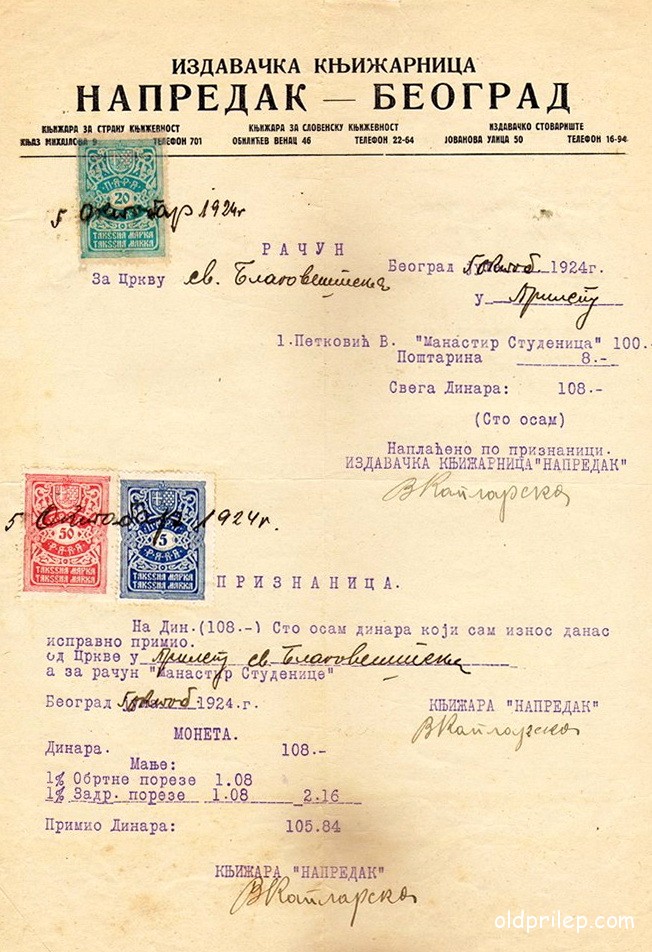 ИЗДАВАЧКА КЊИЖАРНИЦА
НАПРЕДАК — БЕОГРАД
КЊИЖАРА ЗА СТРАНУ КЊИЖЕВНОСТ КЊИЖАРА ЗА СЛОВЕНСКУ КЊИЖЕВНОСТ ИЗДАВАЧКО СТОВАРИШТЕ
КЊАЗ МИХАЈЛОВА 9 ТЕЛЕФОН 701 ОБИЛИЋЕВ ВЕНАЦ 46 ТЕЛЕФОН 22-64 ЈОВАНОВА УЛИЦА 50 ТЕЛЕФОН 16-94
ПАРА
20
ТАКСЕНА МАРКА
TAKSENA MARKA
5 Октобар 1924г
РАЧУН
За Цркву св. Благовештења
Београд 5 октоб. 1924г.
у Прилепу
1. Петковић В. "Манастир Студеница" 100.-
Поштарина 8.-
Свега Динара: 108.-
(Сто осам)
Наплаћено по признаници.
ИЗДАВАЧКА КЊИЖАРНИЦА "НАПРЕДАК"
50
ПАРА
ТАКСЕНА МАРКА
TAKSENA MARKA
5
ПАРА
ТАКСЕНА МАРКА
TAKSENA MARKA
5 1924г.
ПРИЗНАНИЦА.
На Дин. (108.-) Сто осам динара који сам износ данас
исправно примио.
од Цркве у Прилепу св. Благовештења
а за рачун "Манастур Студенице"
Београд 5 октоб 1924.г.
КЊИЖАРА "НАПРЕДАК"
МОНЕТА.
Динара. 108.-
Мање:
1% Обртне порезе 1.08
1% Задр. порезе 1.08 2.16
Примио Динара: 105.84
КЊИЖАРА "НАПРЕДАК"
oldprilep.com